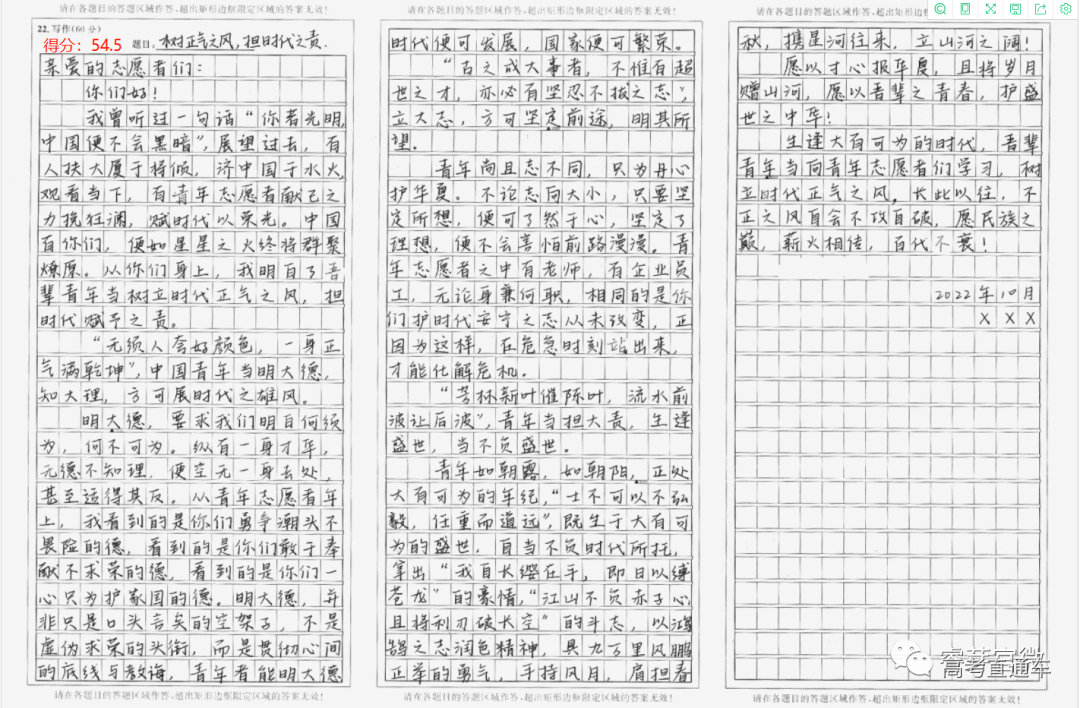 请在各题目的答题区域作答，超出矩形边框限定区域的答案无效！
22.写作(60分)
得分：54.5
题目：树正气之风，担时代之责.
亲爱的志愿者们：
你们好！
我曾听过一句话“你若光明，
中国便不会黑暗”，展望过去，有
人扶大厦于将倾，济中国于水火，
观看当下，百青年志愿者献己之
力挽狂澜，赋时代以荣光。中国
有你们，便如星星之火终将群聚
燎原。从你们身上，我明白了吾
辈青年当树立时代正气之风，担
时代赋予之责。
“无须人夸好颜色，一身正
气满乾坤”，中国青年当明大德，
知大理，方可展时代之雄风。
明大德，要求我们明白何须
为，何不可为。纵有一身才华，
无德不知理，便空无一身去处，
甚至适得其反。从青年志愿者年
上，我看到的是你们勇争潮头不
畏险的德，看到的是你们敢于奉
献不求荣的德，看到的是你们一
心只为护家国的德。明大德，并
非只是口头言矣的空架子，不是
虚伪求荣的头衔，而是贯彻心间
的底线与教诲，青年者能明大德
请在各题目的答题区域作答，超出矩形边框限定区域的答案无效！
请在各题目的答题区域作答，超出矩形边框限定区域的答案无效！
时代便可发展，国家便可繁荣。
“古之成大事者，不惟有超
世之才，亦必有坚忍不拔之志”，
立大志，方可坚定前途，明其所
望。
青年尚且志不同，只为丹心
护华夏。不论志向大小，只要坚
定所想，便可了然于心，坚定了
理想，便不会害怕前路漫漫。青
年志愿者之中有老师，有企业员
工，无论身兼何职，相同的是你
们护时代安宁之志从未改变，正
因为这样，在危急时刻站出来，
才能化解危机。
“芳林新叶催陈叶，流水前
波让后波”，青年当担大责，生逢
盛世，当不负盛世。
青年如朝露，如朝阳，正处
大有可为的年纪，“士不可以不弘
毅，任重而道远”，既生于大有可
为的盛世，自当不负时代所托，
拿出“我自长缨在手，即日以缚
苍龙”的豪情，“江山不负赤子心，
且将利刃破长空”的斗志，以鸿
鹄之志润色精神，具九万里风鹏
正举的勇气，手持风月，肩担春
请在各题目的答题区域作答，超出矩形边框限定区域的答案无效！
请在各题目的答题区域作答，超出矩形边框限定
秋，携星河往来，立山河之阔！
愿以寸心报华夏，且将岁月
赠山河，愿以吾辈之青春，护盛
世之中华！
生逢大有可为的时代，吾辈
青年当向青年志愿者们学习，树
立时代正气之风，长此以往，不
正之风自会不攻自破，愿民族之
巅，薪火相传，百代不衰！
2022年10月
XXX
高考直通车
请在各题目的答题区域作答，超出矩形边框限定区域的答案无效！